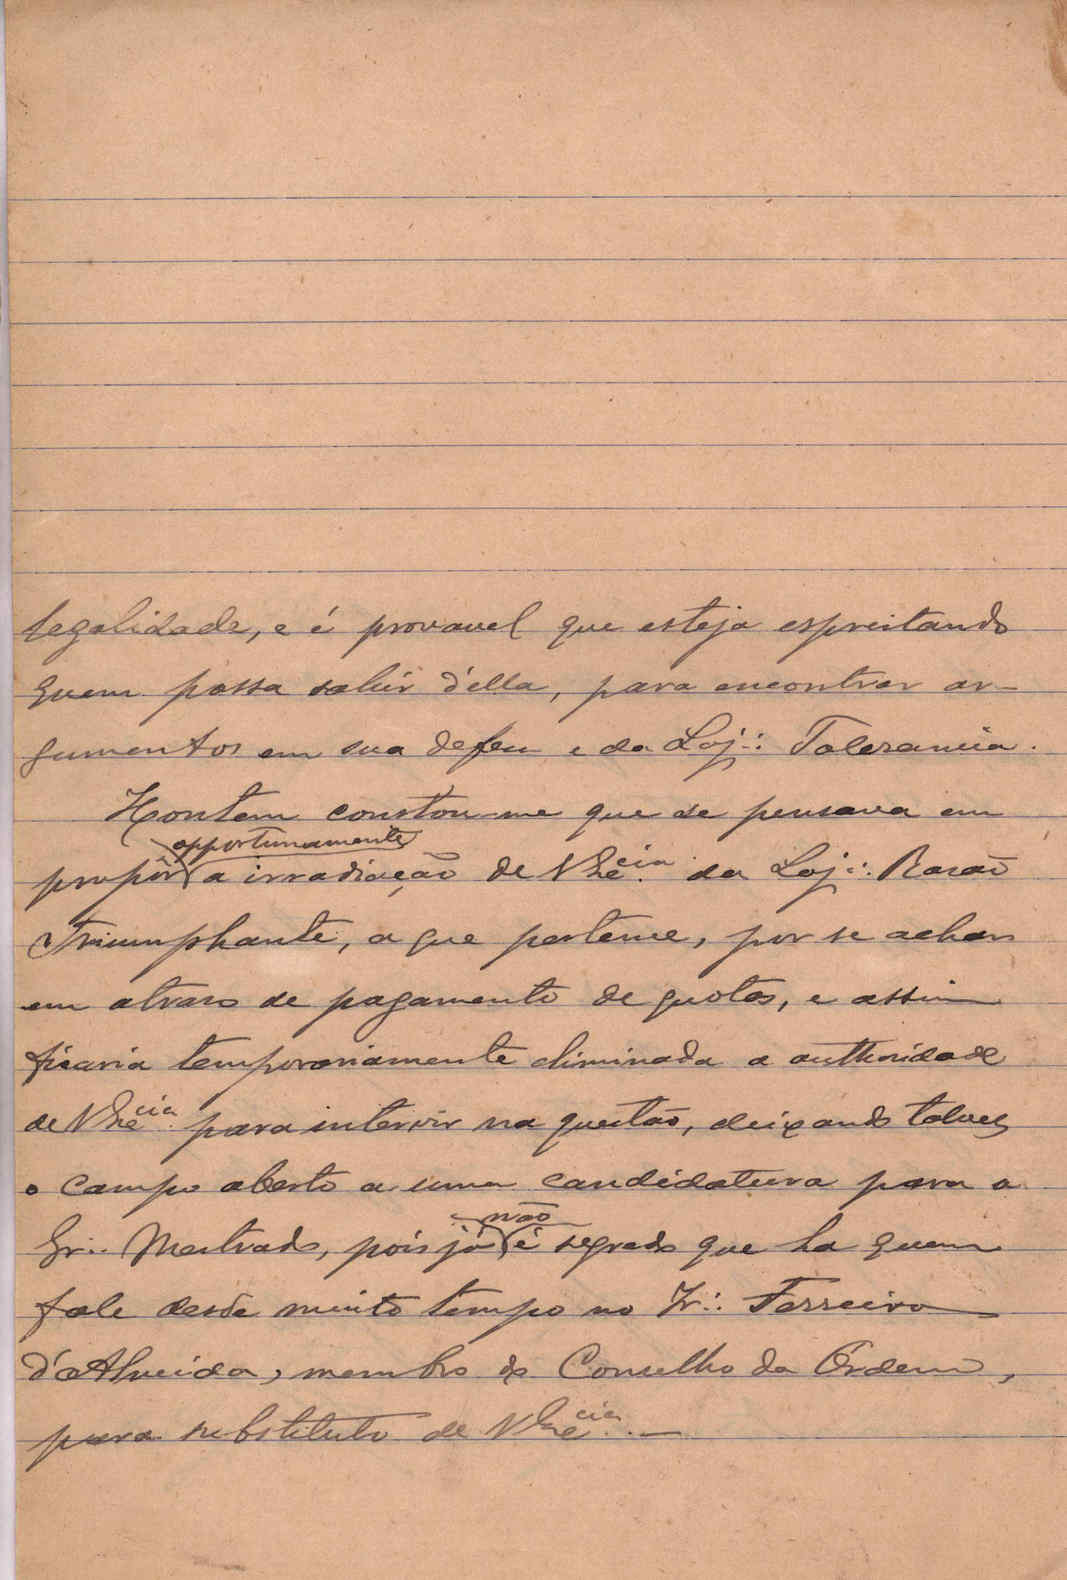 legalidade, e é provavel que esteja espreitando
quem possa sahir d'ella, para encontrar ar-
gumentos em sua defesa e da Loj∴ Tolerancia.
Hontem constou-me que se pensava em
opportunamente
propôr a irradiação de V Exᶜⁱᵃ. da Loj∴ Rasão
Triumphante, a que pertence, por se achar
em atraso de pagamento de quotas, e assim
ficaria temporariamente eliminada a authoridade
de V Exᶜⁱᵃ. para intervir na questão, deixando talvez
o campo aberto a uma candidatura para o
não
Gr∴ Mestrado, pois já é segredo que ha quem
fale desde muito tempo no Ir∴ Ferreira
d'Almeida, membro do Conselho da Ordem,
para substituto de V Exᶜⁱᵃ. —